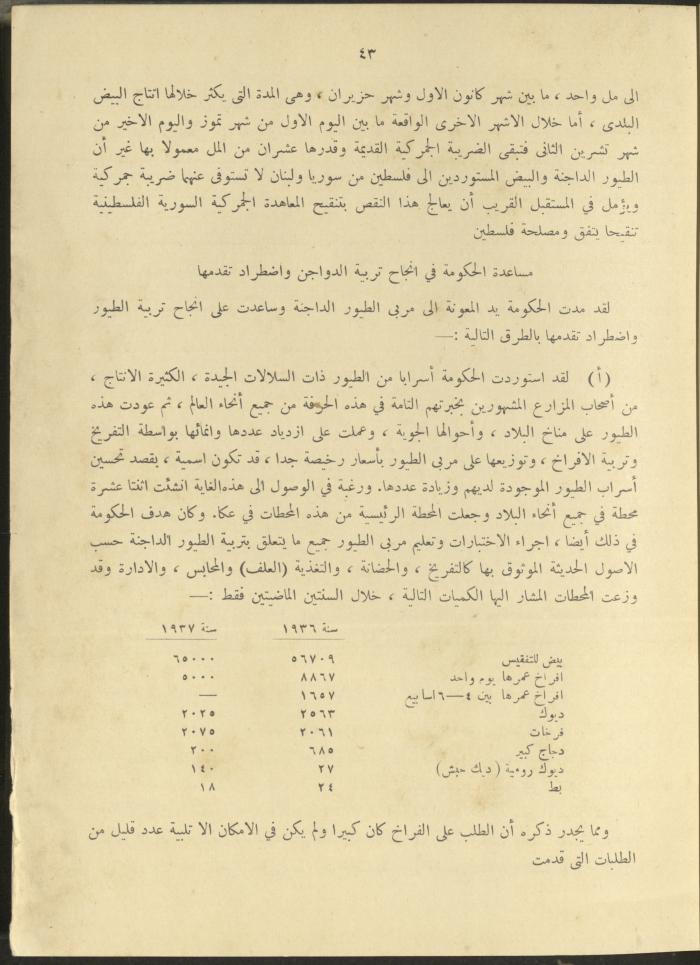 ٤٣
الى مل واحد ، ما بين شهر كانون الاول وشهر حزيران ، وهى المدة التى يكثر خلالها انتاج البيض
البلدى ، أما خلال الاشهر الاخرى الواقعة ما بين اليوم الاول من شهر تموز واليوم الاخير من
شهر تشرين الثانى فتبقى الضريبة الجمركية القديمة وقدرها عشران من المل معمولا بها غير أن
الطيور الداجنة والبيض المستوردين الى فلسطين من سوريا ولبنان لا تستوفى عنهما ضريبة جمركية
ويؤمل في المستقبل القريب أن يعالج هذا النقص بتنقيح المعاهدة الجمركية السورية الفلسطينية
تنقيحا يتفق ومصلحة فلسطين
مساعدة الحكومة في انجاح تربية الدواجن واضطراد تقدمها
لقد مدت الحكومة يد المعونة الى مربى الطيور الداجنة وساعدت على انجاح تربية الطيور
واضطراد تقدمها بالطرق التالية :—
(أ) لقد استوردت الحكومة أسرابا من الطيور ذات السلالات الجيدة ، الكثيرة الانتاج ،
من أصحاب المزارع المشهورين بخبرتهم التامة في هذه الحرفة من جميع أنحاء العالم ، ثم عودت هذه
الطيور على مناخ البلاد ، وأحوالها الجوية ، وعملت على ازدياد عددها وانمائها بواسطة التفريخ
وتربية الافراخ ، وتوزيعها على مربى الطيور بأسعار رخيصة جدا ، قد تكون اسمية ، بقصد تحسين
أسراب الطيور الموجودة لديهم وزيادة عددها. ورغبة في الوصول الى هذه الغاية انشئت اثنتا عشرة
محطة في جميع أنحاء البلاد وجعلت المحطة الرئيسية من هذه المحطات في عكا. وكان هدف الحكومة
في ذلك أيضا ، اجراء الاختبارات وتعليم مربى الطيور جميع ما يتعلق بتربية الطيور الداجنة حسب
الاصول الحديثة الموثوق بها كالتفريخ ، والحضانة ، والتغذية (العلف) والمحابس ، والادارة وقد
وزعت المحطات المشار اليها الكميات التالية ، خلال السنتين الماضيتين فقط :—
سنة ١٩٣٦ سنة ١٩٣٧
بيض للتفقيس ٥٦٧٠٩ ٦٥٠٠٠
افراخ عمرها يوم واحد ٨٨٦٧ ٥٠٠٠
افراخ عمرها بين ٤—٦ اسابيع ١٦٥٧ —
ديوك ٢٥٦٣ ٢٠٢٥
فرخات ٢٠٦١ ٢٠٧٥
دجاج كبير ٦٨٥ ٢٠٠
ديوك رومية (ديك حبش) ٢٧ ١٤٠
بط ٢٤ ١٨
ومما يجدر ذكره أن الطلب على الفراخ كان كبيرا ولم يكن في الامكان الا تلبية عدد قليل من
الطلبات التى قدمت